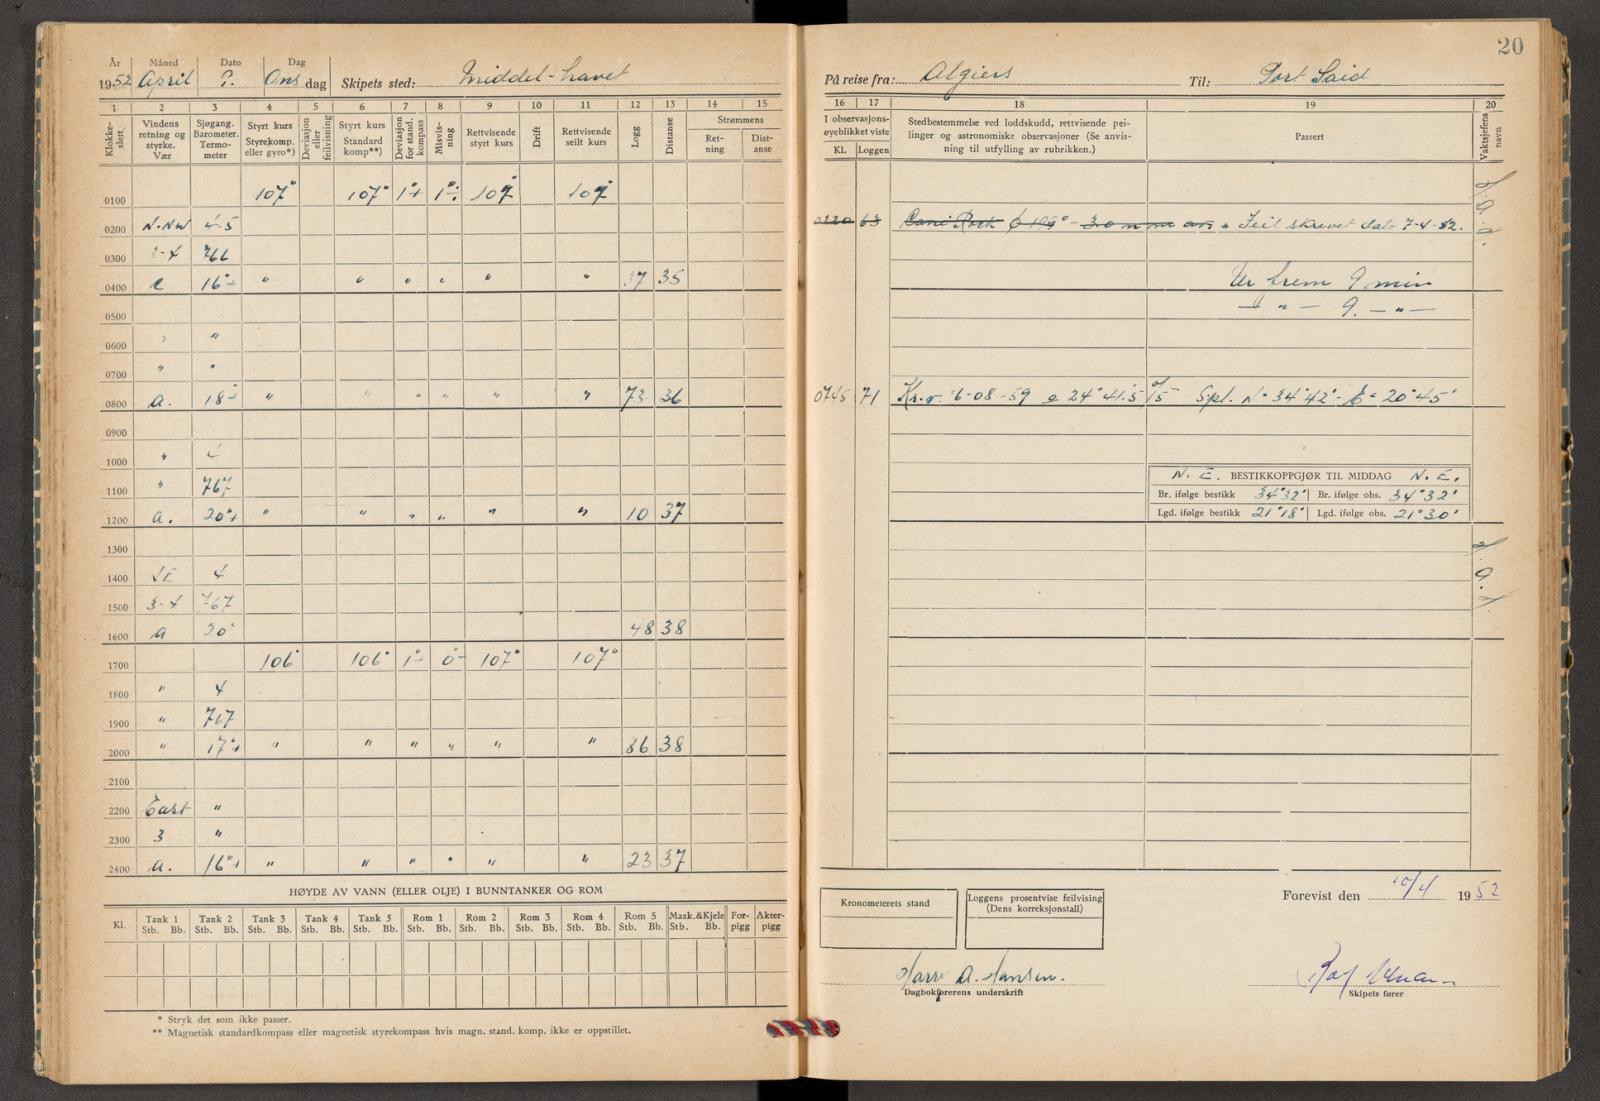 20
År Måned Dato Dag
1952 April 9. Ons dag Skipets sted: Middel-havet
På reise fra: Algiers Til: Port Said
1 2 3 4 5 6 7 8 9 10 11 12 13 14 15
Klokkeslett
Vindens retning og styrke. Vær
Sjøgang. Barometer. Termometer
Styrt kurs Styrekomp. eller gyro*)
Deviasjon eller feilvisning
Styrt kurs Standard komp**)
Deviasjon for stand. kompass
Misvisning
Rettvisende styrt kurs
Drift
Rettvisende seilt kurs
Logg
Distanse
Strømmens
Retning
Distanse
0100 107° 107° 1°+ 1°÷ 107° 107°
0200 N.NW 4-5
0300 3-4 766
0400 c 16°+ " " " " " " 37 35
0500
0600 " "
0700 "
0800 a. 18°+ " " " " " " 73 36
0900
1000 "
1100 " 767
1200 a. 20°+ " " " " " " 10 37
1300
1400 4
1500 3-4 767
1600 a 20° 48 38
1700 106° 106° 1°+ 0°- 107° 107°
1800 " 4
1900 " 767
2000 " 17°+ " " " " " " 86 38
2100
2200 East "
2300 3 "
2400 a. 16°+ " " " " " 23 37
HØYDE AV VANN (ELLER OLJE) I BUNNTANKER OG ROM
Kl. Tank 1 Tank 2 Tank 3 Tank 4 Tank 5 Rom 1 Rom 2 Rom 3 Rom 4 Rom 5 Mask.&Kjele Forpigg Akterpigg
Stb. Bb. Stb. Bb. Stb. Bb. Stb. Bb. Stb. Bb. Stb. Bb. Stb. Bb. Stb. Bb. Stb. Bb. Stb. Bb. Stb. Bb.
* Stryk det som ikke passer.
** Magnetisk standardkompass eller magnetisk styrekompass hvis magn. stand. komp. ikke er oppstillet.
16 17 18 19 20
I observasjonsøyeblikket viste
Kl. Loggen
Stedbestemmelse ved loddskudd, rettvisende peilinger og astronomiske observasjoner (Se anvisning til utfylling av rubrikken.)
Passert
Vaktsjefens navn
0220 63 Cani Rock Feil skrevet dato 7-4-52.
Ur frem 9 min
— " — 9. — " —
0745 71 Kr.v. 6-08-59 24°41.5 Spl. N=34°42' - E=20°45'
N.E. BESTIKKOPPGJØR TIL MIDDAG N.E.
Br. ifølge bestikk 34°32' Br. ifølge obs. 34°32'
Lgd. ifølge bestikk 21°18' Lgd. ifølge obs. 21°30'
Kronometerets stand
Loggens prosentvise feilvising
(Dens korreksjonstall)
Forevist den 10/4 1952
Harry A. Hansen.
Dagbokførerens underskrift
Skipets fører